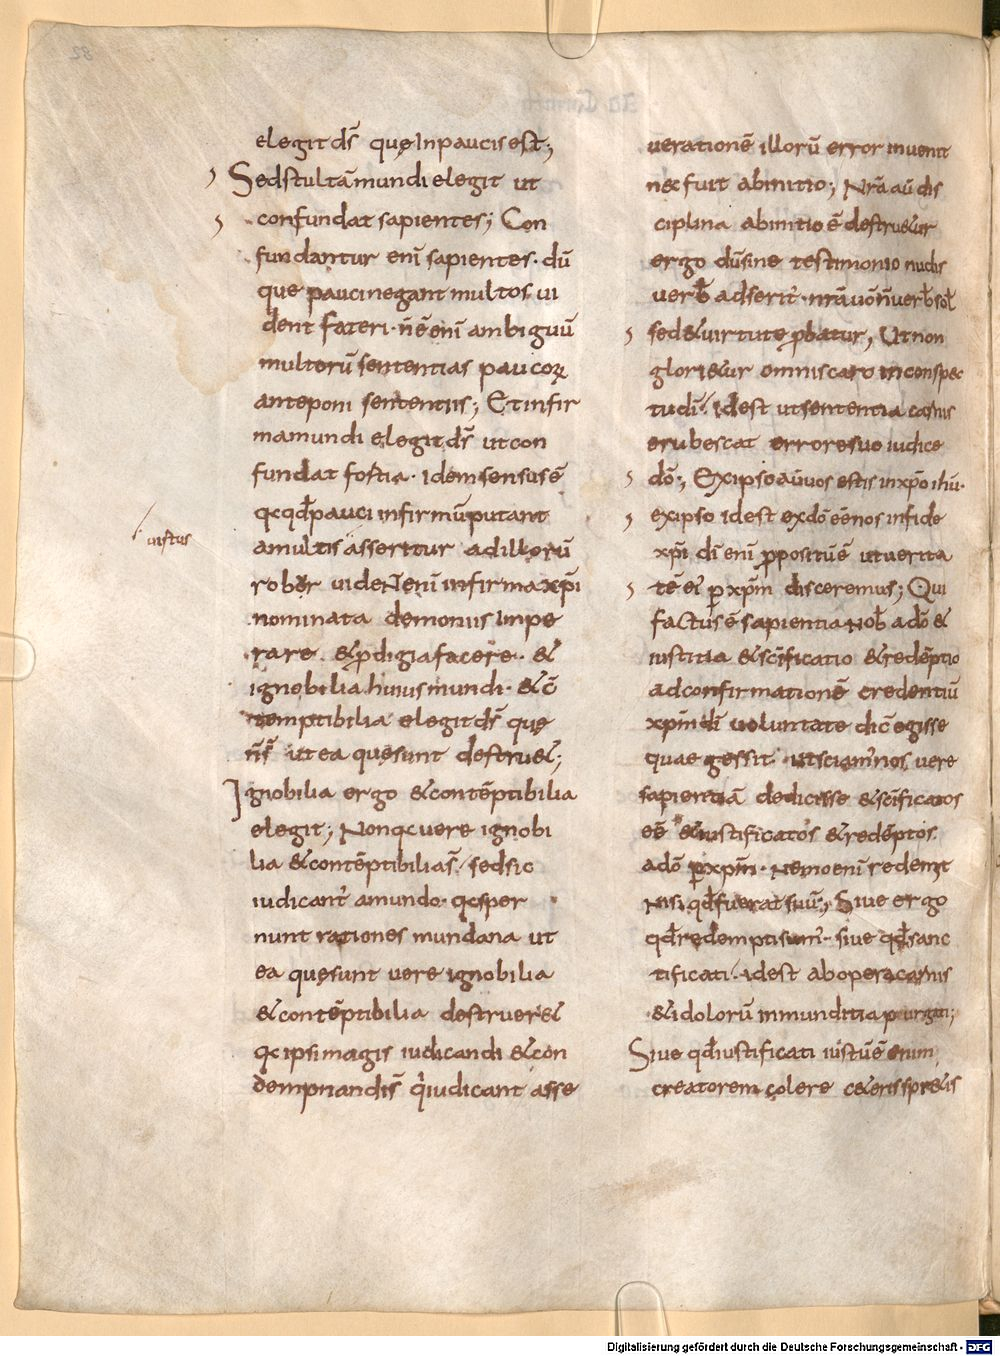 elegit ds̄ quę In paucis est;
Sed stultā mundi elegit ut
confundat sapientes; Con
fundantur enī sapientes · dū
que pauci negant multos ui
dent fateri · n̄ ē enī ambiguū
multorū sententias paucoꝝ
anteponi sententiis; Et infir
ma mundi elegit ds̄ ut con
fundat fortia · idem sensus ē
qc qđ pauci infirmū putant
a multis asseritur ad illorū
robor uideN̄ enī infirma xp̄i
nominata demoniis Impe
rare · & ꝓdigia facere · &
ignobilia huius mundi · & cō
temptibilia elegit ds̄ quę
n̄ s̄ ut ea quę sunt destruer&;
Ignobilia ergo & contēptibilia
elegit; Non qc uere ignobi
lia & contēptibilia s̄ · sed sic
iudicant̄ a mundo · qc sper
nunt rationes mundana ut
ea quę sunt uere ignobilia
& contēptibilia destruer&
qc ipsi magis iudicandi & con
dempnandi s̄ q̇ iudicant asse
uistus
uerationē illorū error inuenit
nec fuit ab initio; Nr̄a aū dis
ciplina ab initio ē destru&ur
ergo dū sine testimonio nudis
uerƀ adserit̄ · nr̄a uō n̄ uerƀ sol̄
sed & uirtute ꝓbatur; Ut non
glori&ur omnis caro in conspec
tu dī · idest ut sententia carnis
erubescat errore suo iudice
dō; Ex ipso aū uos estis in xp̄o ihū ·
ex ipso idest ex dō eē nos in fide
xp̄i dī enī ꝓpositū ē ut uerita
tē ei ꝑ xp̄m disceremus; Qui
factus ē sapientia noƀ a dō &
iustitia & sc̄ificatio & redēptio
ad confirmationē credentiū
xp̄m dī uoluntate dic̄ egisse
quae gessit · ut sciam' nos uere
sapientiā dedicisse & sc̄ificatos
eē & iustificatos & redēptos
a dō ꝑ xp̄m · Nemo enī redemit
nisi qđ fuerat suū; Siue ergo
qđ redempti sum' · siue qđ sanc
tificati · idest ab opera carnis
& idolorū inmunditia purgati;
Siue qđ iustificati iustū ē enim
creatorem colere c&eris spr&is
Digitalisierung gefördert durch die Deutsche Forschungsgemeinschaft - DFG